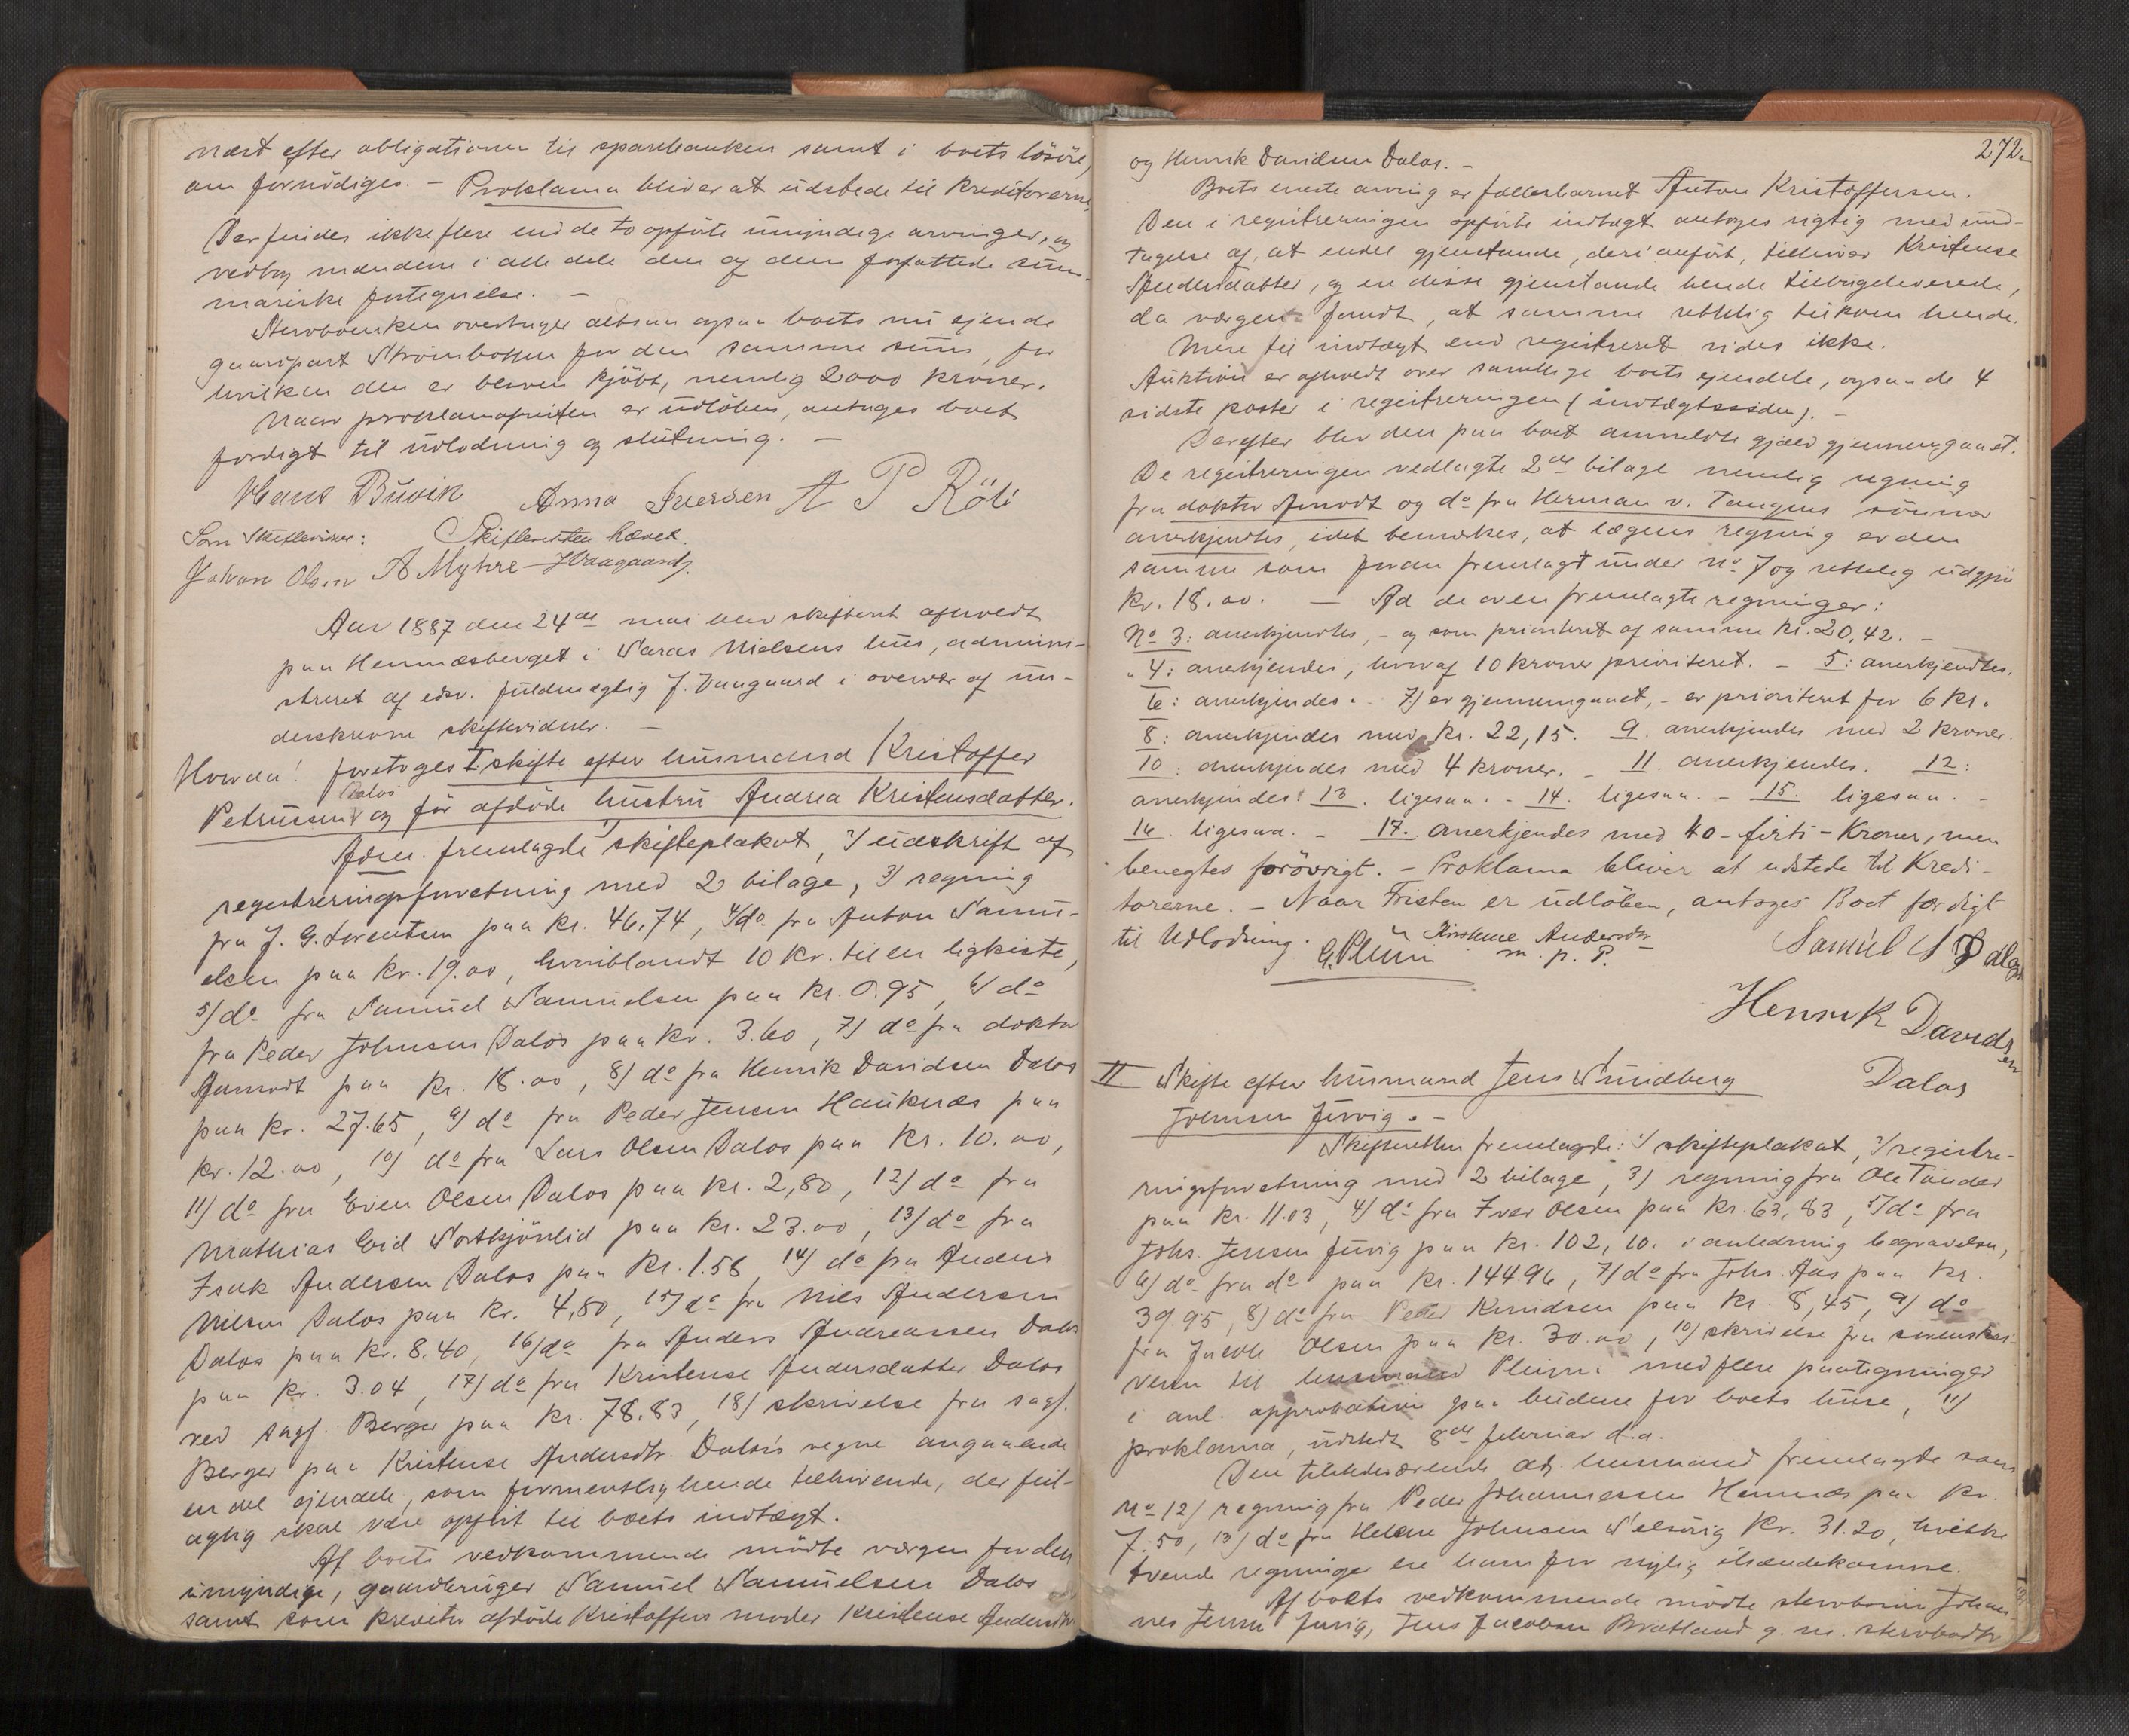 næst efter obligationen til sparebanken samt i boets lösöre,
om fornödiges. – Proklama bliver at udstede til kreditorerne,
Der findes ikke flere end de to opförte umyndige arvinger, og
vedtog mændene i alle dele den af dem forfattede sum-
mariske fortegnelse. –
Stervboenken overtager altsaa ogsaa boets nu eiende
gaardpart Strömbotten for den samme sum, for
hvilken den er bleven kjöbt, nemlig 2000 kroner.
Naar proklamafristen er udlöben, antages boet
færdigt til udlodning og slutning. –
Hans Buvik Anna Iversen A P Röli
Som Skiftevidner: Skifteretten hævet.
Johan Olsen A Myhre J Vaagaard
Aar 1887 den 24de mai blev skifteret afholdt
paa Hemnæsberget i Saras Nielsens hus, admini-
streret af edsv. fuldmægtig J. Vaagaard i overvær af un-
derskrevne skiftevidner. –
Hvorda! foretoges I skifte efter husmand Kristoffer
Dalos
Petersen og för afdöde hustru Andrea Kristensdatter.
Adm. fremlagde 1) skifteplakat, 2) udskrift af
registreringsforretning med 2 bilage, 3) regning
fra J. G. Lorentsen paa kr. 46,74, 4) do fra Anton Samu-
elsen paa kr. 19.00, hvoriblandt 10 kr. til en ligkiste,
5) do fra Samuel Samuelsen paa kr. 0.95, 6) do
fra Peder Johnsen Dalos paa kr. 3.60, 7) do fra doktor
Aamodt paa kr. 18.00, 8) do fra Henrik Davidsen Dalos
paa kr. 27.65, 9) do fra Peder Jensen Hauknæs paa
kr. 12.00, 10) do fra Lars Olsen Dalos paa kr. 10.00,
11) do fra Even Olsen Dalos paa kr. 2,80, 12) do fra
Mathias Eid Nortkjönlid paa kr. 23.00, 13) do fra
Isak Andersen Dalos paa kr. 1.58, 14) do fra Anders
Nilsen Dalos paa kr. 4,80, 15) do fra Nils Andersen
Dalos paa kr. 8.40, 16) do fra Anders Andreassen Dalos
paa kr. 3.04, 17) do fra Kristense Andersdatter Dalos
ved sagf. Berger paa kr. 78.83, 18) skrivelse fra sagf.
Berger paa Kristense Andersdtr. Dalos's vegne angaaende
en del eiendele, som formentlig hende tilhörende, der feil-
agtig skal være opfört til boets indtægt.
Af boets vedkommende mödte værgen for den
umyndige, gaardbruger Samuel Samuelsen Dalos
samt som kreditor afdöde Kristoffers moder Kristense Andersdtr
272.
og Henrik Davidsen Dalos. –
Boets eneste arving er fællesbarnet Anton Kristoffersen.
Den i registreringen opförte indtægt antoges rigtig med und-
tagelse af, at endel gjenstande, deri anfört, tilhörer Kristense
Andersdatter, og er disse gjenstande hende tilbageleverede,
da værgen fandt, at samme rettelig tilkom hende.
Mere til indtægt end registreret vides ikke.
Auktion er afholdt over samtlige boets eiendele, ogsaa de 4
sidste poster i registreringen (indtægtssiden). –
Derefter blev den paa boet anmeldte gjæld gjennemgaaet.
De registreringen vedlagte 2de bilage nemlig regning
fra doktor Amodt og do fra Herman v. Tangens sönner
anerkjendtes, idet bemærkes, at lægens regning er den
samme som foran fremlagt under no 7 og rettelig udgjör
kr. 18.00. – Ad de oven fremlagte regninger:
No 3: anerkjendtes, – og som prioriteret af samme kr. 20,42. –
" 4: anerkjendes, hvoraf 10 kroner prioriteret. – 5: anerkjendtes.
6: anerkjendes. – 7) er gjennemgaaet, – er prioriteret for 6 kr.
8: anerkjendes med kr. 22,15. 9. anerkjendes med 2 kroner.
10: anerkjendes med 4 kroner. – 11. anerkjendes. 12:
anerkjendes: 13. ligesaa. – 14. ligesaa. – 15. ligesaa. –
16. ligesaa. – 17. anerkjendes med 40 – firti – Kroner, men
benegtes forövrigt. – Proklama bliver at udstede til Kredi-
torerne. – Naar Fristen er udlöben, antages Boet færdigt
til Udlodning.
G. Plüm Kirstense Andersdtr m. p. P. Samuel S Dalos
Henrik Davidsen
Dalos
II Skifte efter husmand Jens Sundberg
Johnsen Jurvig. –
Skifteretten fremlagde: 1) skifteplakat, 2) registre-
ringsforretning med 2 bilage, 3) regning fra Ole Tander
paa kr. 11.03, 4) do fra Iver Olsen paa kr. 63,83, 5) do fra
Johs. Jensen Jurvig paa kr. 102,10. i anledning begravelsen,
6) do fra do paa kr. 144.96, 7) do fra Johs. Aas paa kr.
39.95, 8) do fra Peder Knudsen paa kr. 8,45, 9) do
fra Jacob Olsen paa kr. 30.00, 10) skrivelse fra sorenskri-
veren til lensmand Pleim med flere paategninger
i anl. approbation paa budene for boets huse, 11)
proklama, udstedt 8de februar d.a.
Den tilstedeværende adj. lensmand fremlagde som
No 12) regning fra Peder Johannessen Hemnæs paa kr.
7.50, 13) do fra Helene Johnsen Selsövig kr. 31.20, hvilke
tvende regninger ere ham for nylig ihændekomne.
Af boets vedkommende mödte stervboerne Johan-
nes Jensen Jurvig, Jens Jacobsen Bratland g. m. stervbodtr